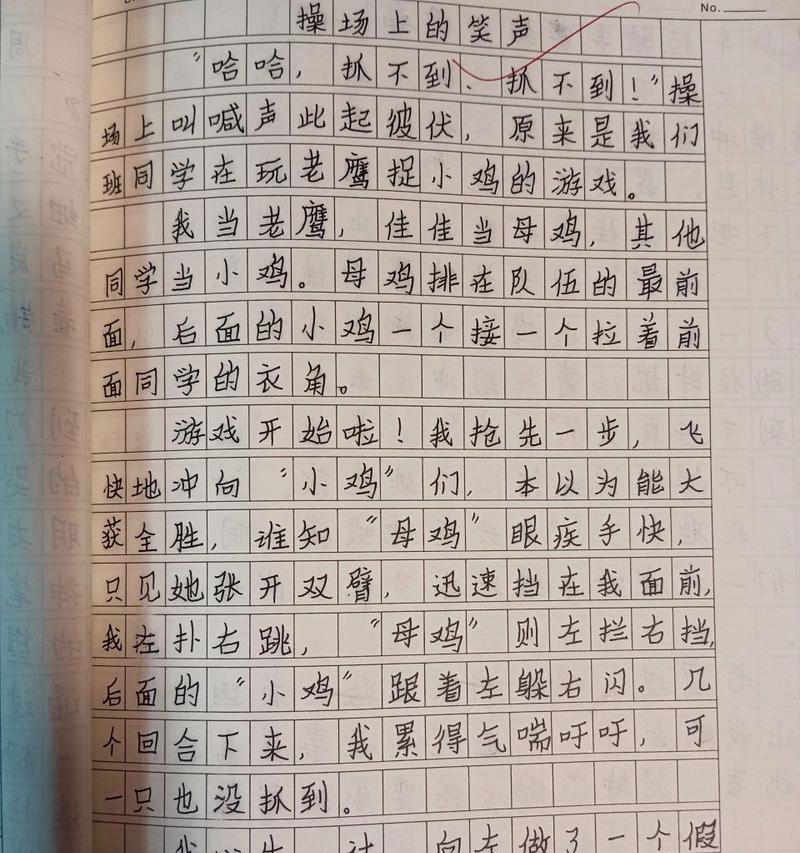 No.
操场上的笑声
“哈哈，抓不到、抓不到！”操
场上叫喊声此起彼伏，原来是我们
班同学在玩老鹰捉小鸡的游戏。
我当老鹰，佳佳当母鸡，其他
同学当小鸡。母鸡排在队伍的最前
面，后面的小鸡一个接一个拉着前
面同学的衣角。
游戏开始啦！我抢先一步，飞
快地冲向“小鸡”们，本以为能大
获全胜，谁知“母鸡”眼疾手快，
只见她张开双臂，迅速挡在我面前，
我左扑右跳，“母鸡”则左拦右挡，
后面的“小鸡”跟着左躲右闪。几
个回合下来，我累得气喘吁吁，可
一只也没抓到。
我 生一计，向左做了一个假